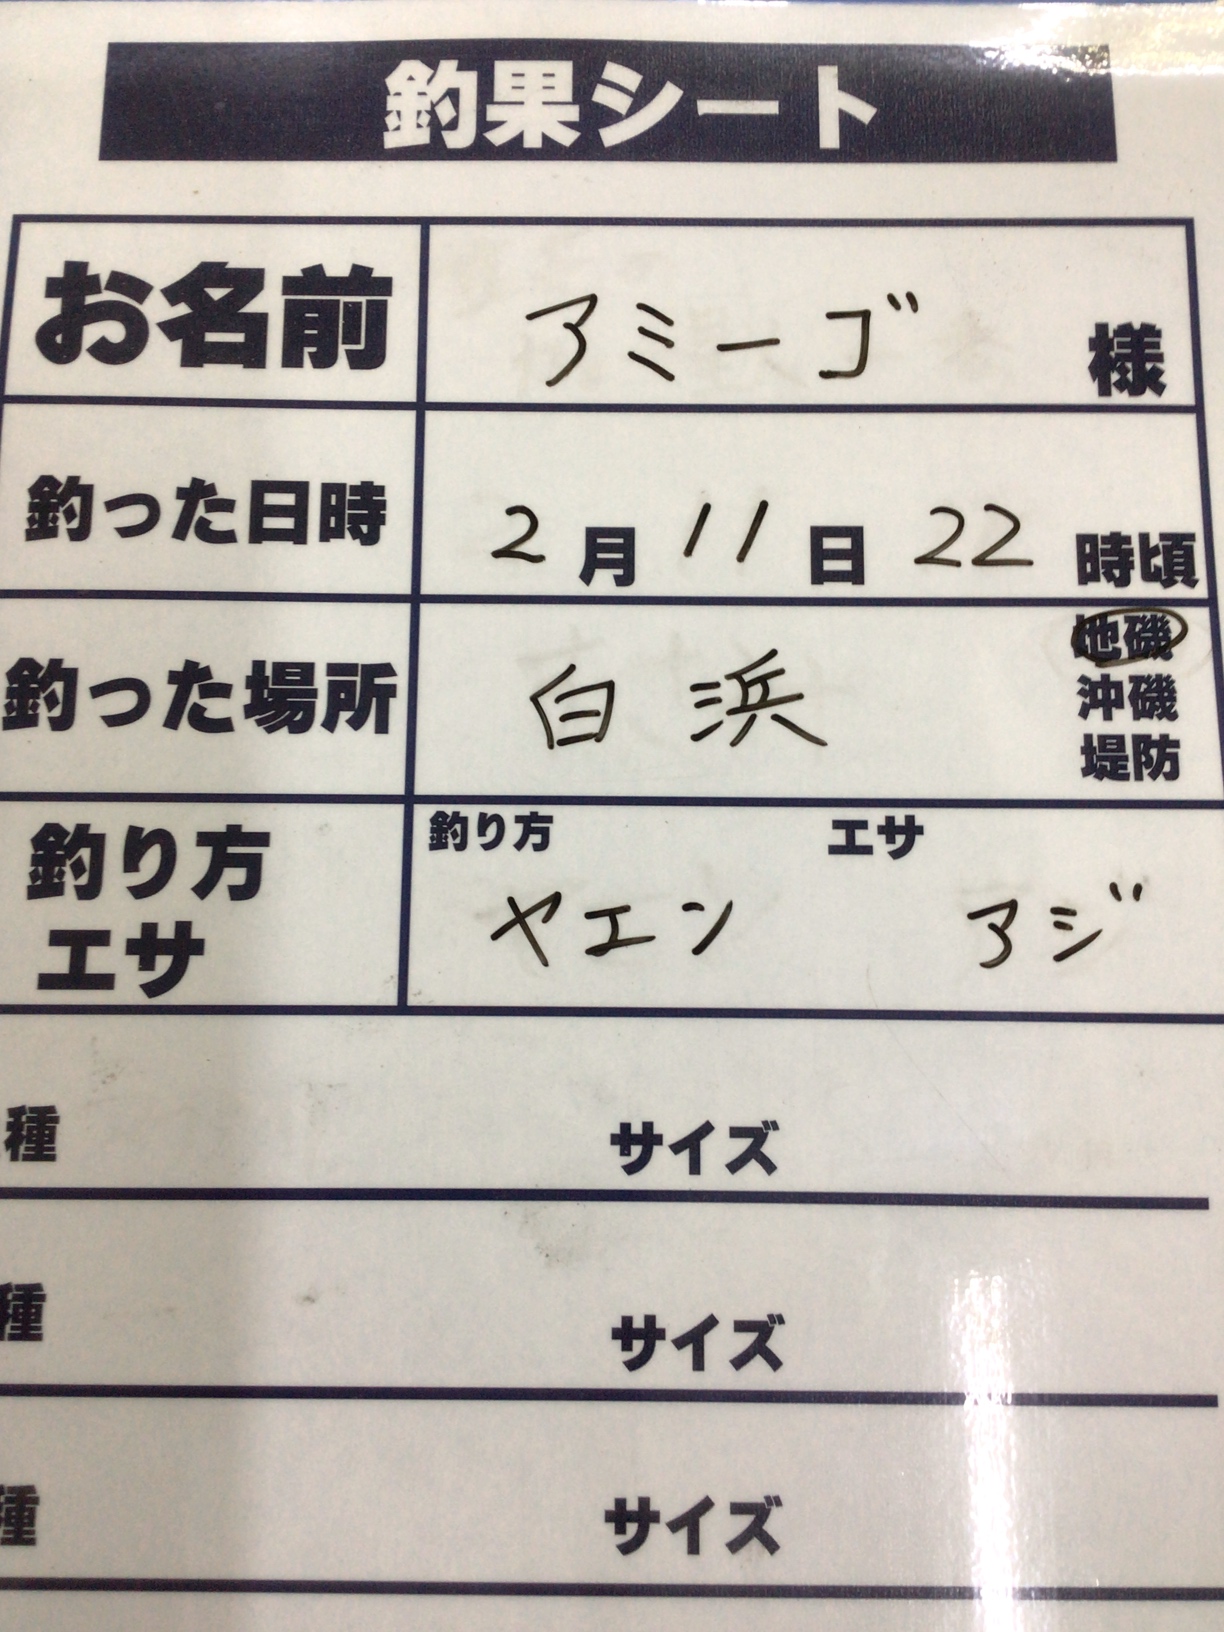 釣果シート
お名前 アミーゴ 様
釣った日時 2月11日22時頃
釣った場所 白浜 地磯
沖磯
堤防
釣り方 エサ
釣り方
エサ
ヤエン アジ
種 サイズ
種 サイズ
種 サイズ